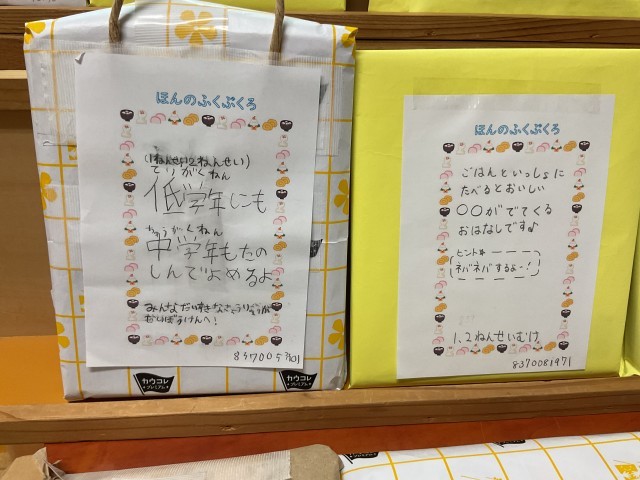 ほんのふくぶくろ
(1ねんせい2ねんせい)
ていがくねん
低学年にも
ちゅうがくねん
中学年もたの
しんでよめるよ
みんなだいすきな
カウコレ
プレミアム
ほんのふくぶくろ
ごはんといっしょに
たべるとおいしい
〇〇がでてくる
おはなしです♪
ヒント
ネバネバするよー!
1、2ねんせいむけ
8370081971